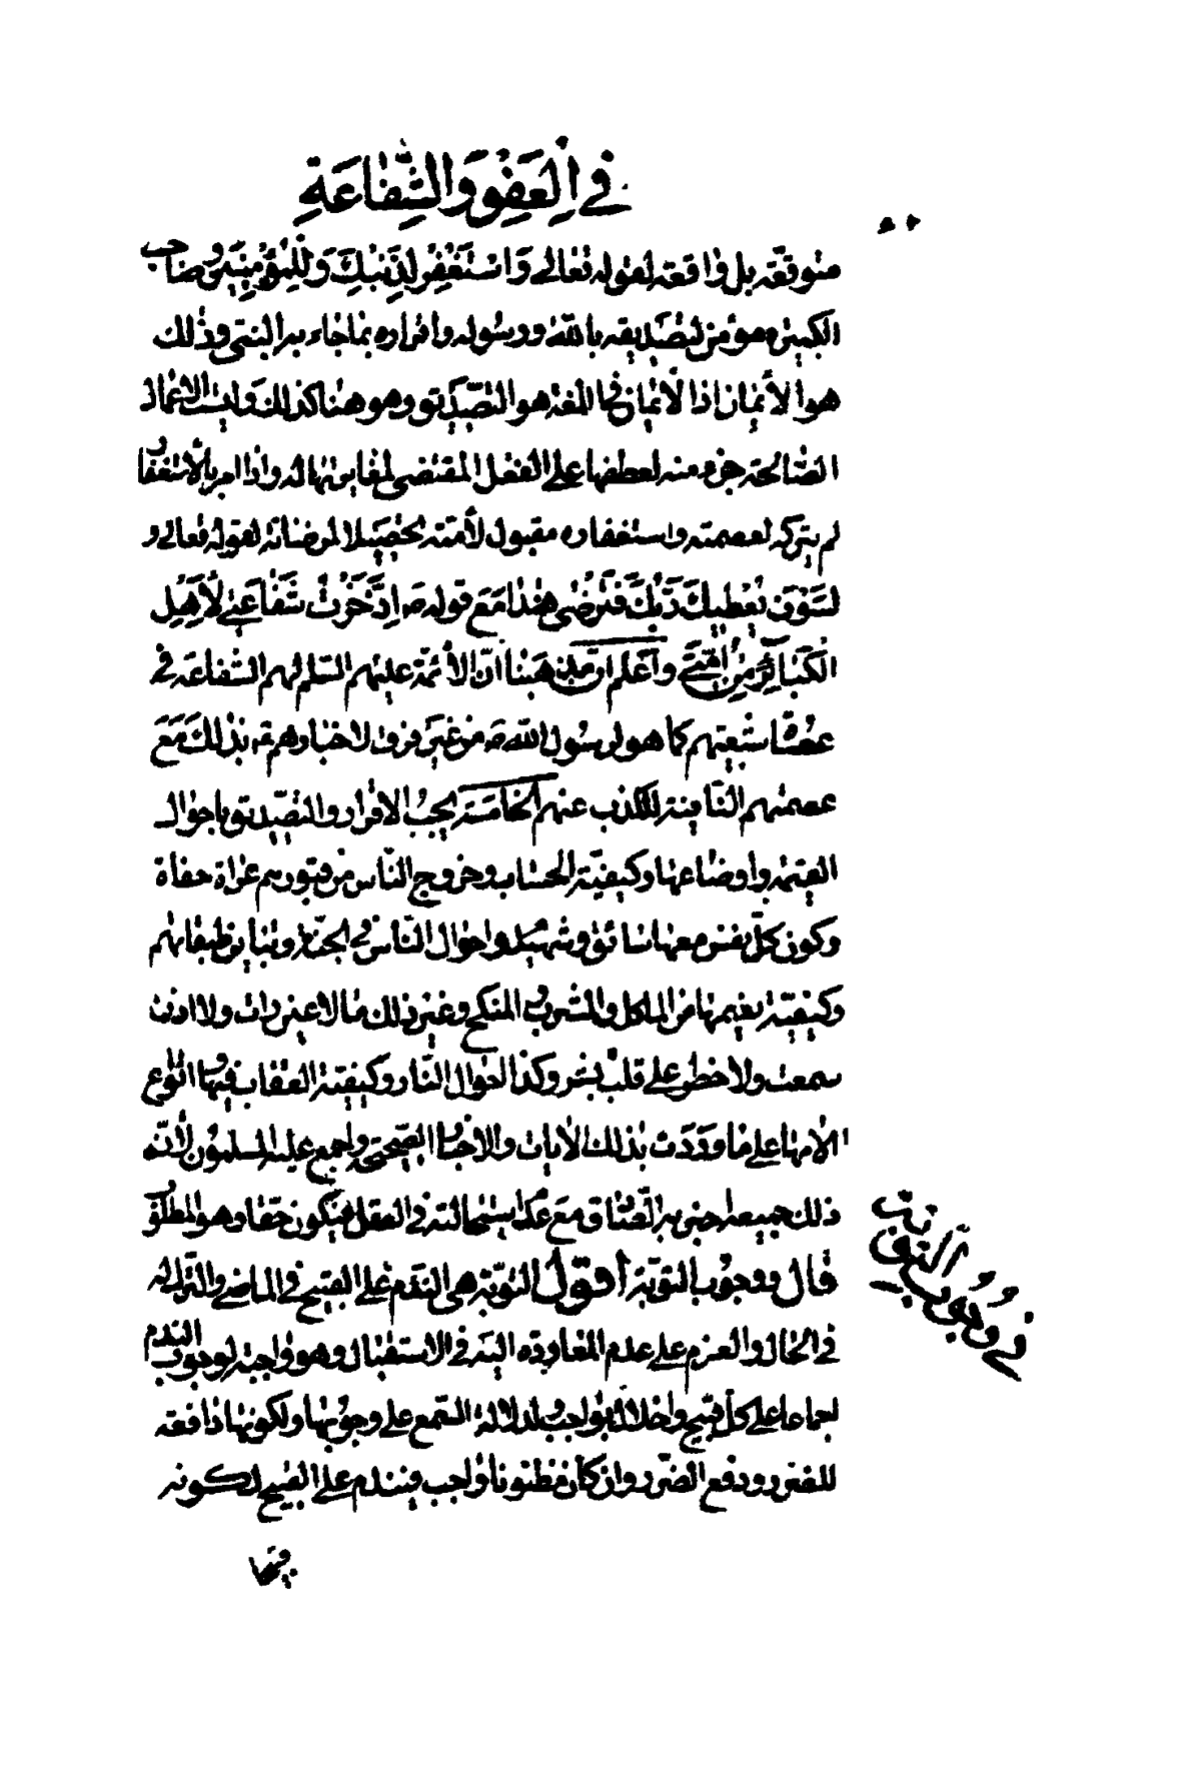 في العفو والشفاعة
متوقعة بل واقعة لقوله تعالى وَاسْتَغْفِرْ لِذَنْبِكَ وَلِلْمُؤْمِنِينَ وصاحب
الكبيرة مؤمن لتصديقه بالله ورسوله واقراره بما جاء به النبي وذلك
هو الأيمان اذ الأيمان في اللغة هو التصديق وهو هنا كذلك وليست الاعمال
الصالحة جزء منه لعطفها على الفعل المقتضي لمغايرتها له واذا امر بالأستغفار
لم يتركه لعصمته واستغفاره مقبول لأمته تحصيلا لمرضاته لقوله تعالى و
لَسَوْفَ يُعْطِيكَ رَبُّكَ فَتَرْضى هذا مَعَ قوله ص اِدَّخَرْتُ شَفَاعَتِي لأَهْلِ
الْكَبَائِرِ مِنْ اُمَّتِي واعلم ان مذهبنا انّ الأئمّة عليهم السّلم لهم الشفاعة في
عصاة شيعتهم كما هو لرسول الله ص من غير فرق لاخبارهم ع بذلك مَعَ
عصمتهم النّافية للكذب عنهم الخامسة يجبُ الاقرار والتصديق باحوال
القيمة واوضاعها وكيفيّة الحساب وخروج النّاس من قبورهم عراة حفاة
وكون كلّ نفس معها سائق وشهيد واحوال النّاس في الجنّة وتباين طبقاتهم
وكيفيّة نعيمها من المأكل والمشرب والمنكح وغير ذلك مما لا عين رات ولا اذن
سمعت ولا خطر على قلب بشر وكذا احوال النّار وكيفيّة العقاب فيها وانواع
الامها على ما وردت بذلك الأيات والاخبار الصحيحة واجمع عليه المسلمون لأنّ
ذلك جميعه اخبر به الصّادق مَعَ عدم استحالته في العقل فيكون حقّا وهو المطلوب
قال ووجوب التوبة أقول التوبة هي الندم على القبيح في الماضي والترك له
في الحال والعزم على عدم المعاودة اليه في الاستقبال وهو واجبة لوجوب الندم
اجماعا على كلّ قبيح واخلال بواجب لدلالة السّمع على وجوبها ولكونها دافعة
للضرر ودفع الضّرر وان كان مظنونا واجب فيندم على القبيح لكونه
في وجوب التوبة